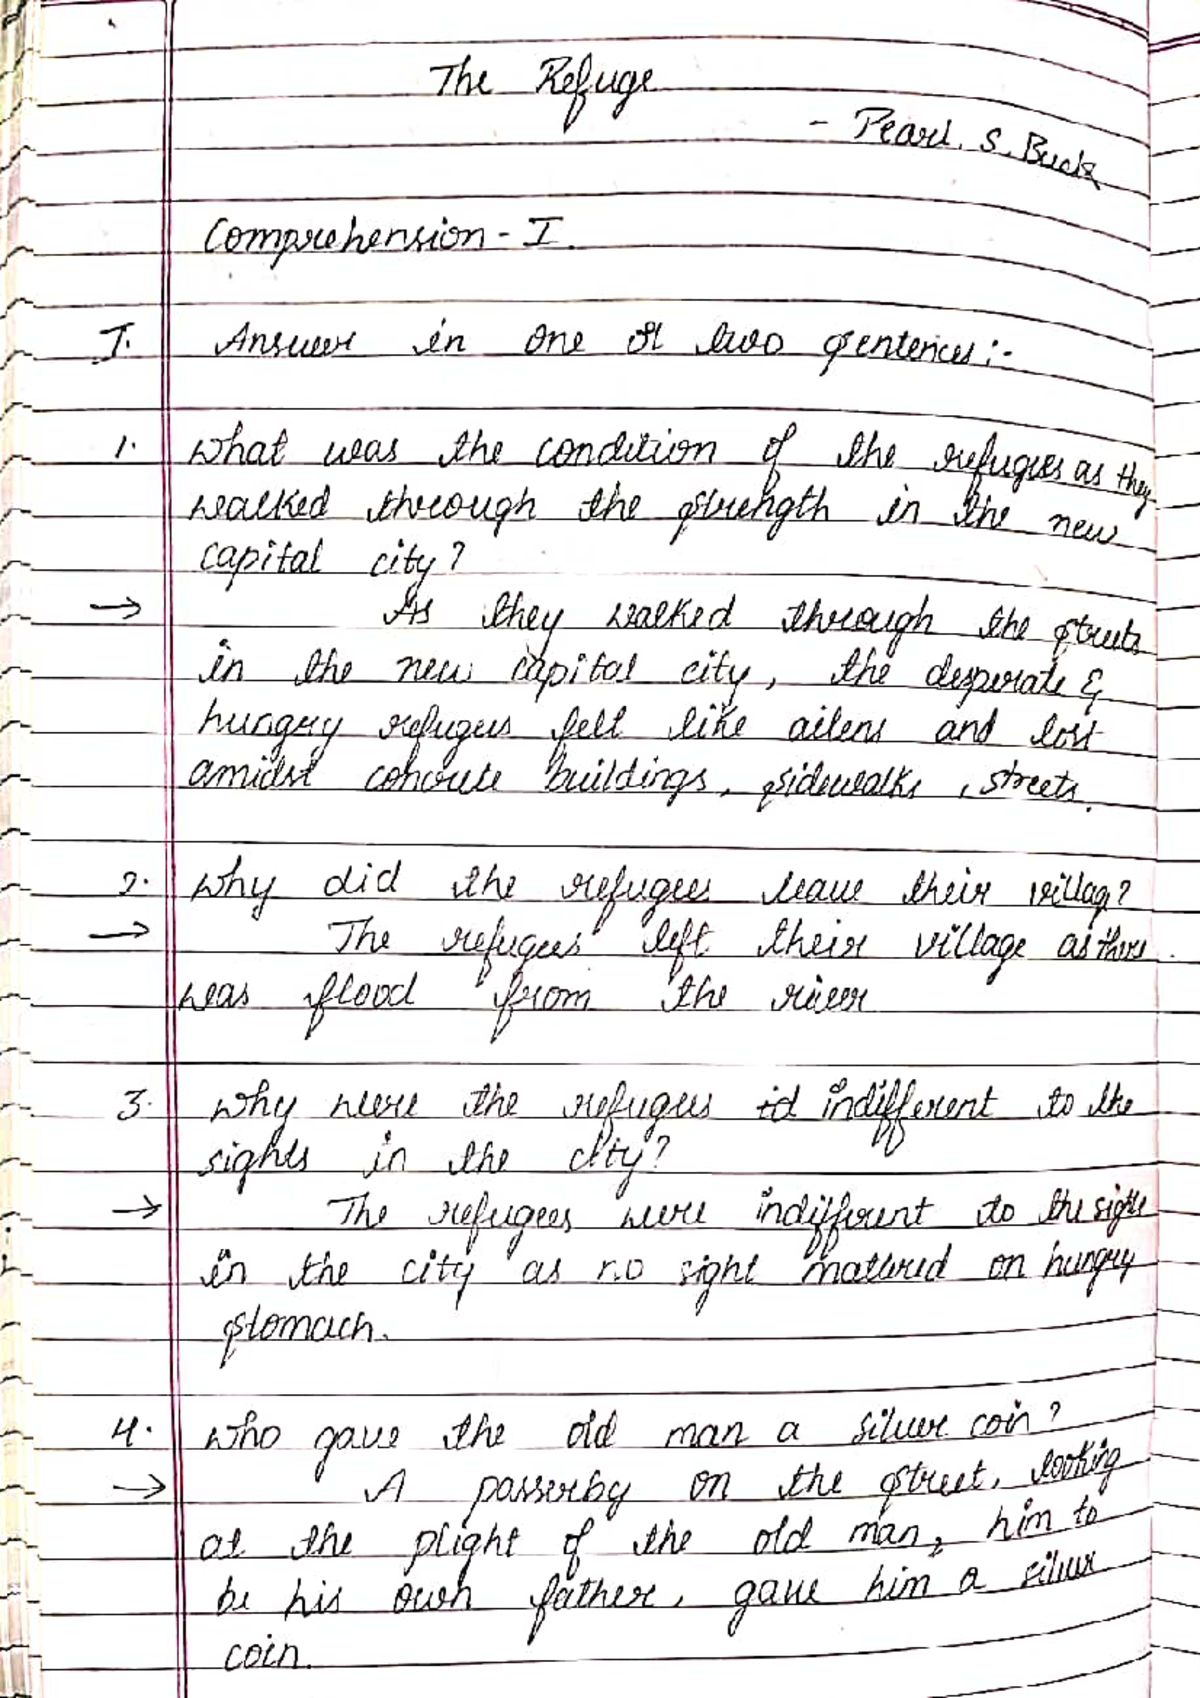 The Refuge
- Pearl. S. Buck
Comprehension - I.
I. Answer in one or two sentences :-
1. what was the condition of the refugees as they
walked through the strength in the new
capital city?
→ As they walked through the streets
in the new capital city, the desperate &
hungry refugees felt like ailens and lost
amidst concrete buildings, sidewalks, streets.
2. why did the refugees leave their village?
→ The refugees left their village as there
was flood from the river
3. why were the refugees id indifferent to the
sights in the city?
→ The refugees were indifferent to the sight
in the city as no sight mattered on hungry
stomach.
4. who gave the old man a silver coin?
→ A passerby on the street, looking
at the plight of the old man, him to
be his own father, gave him a silver
coin.